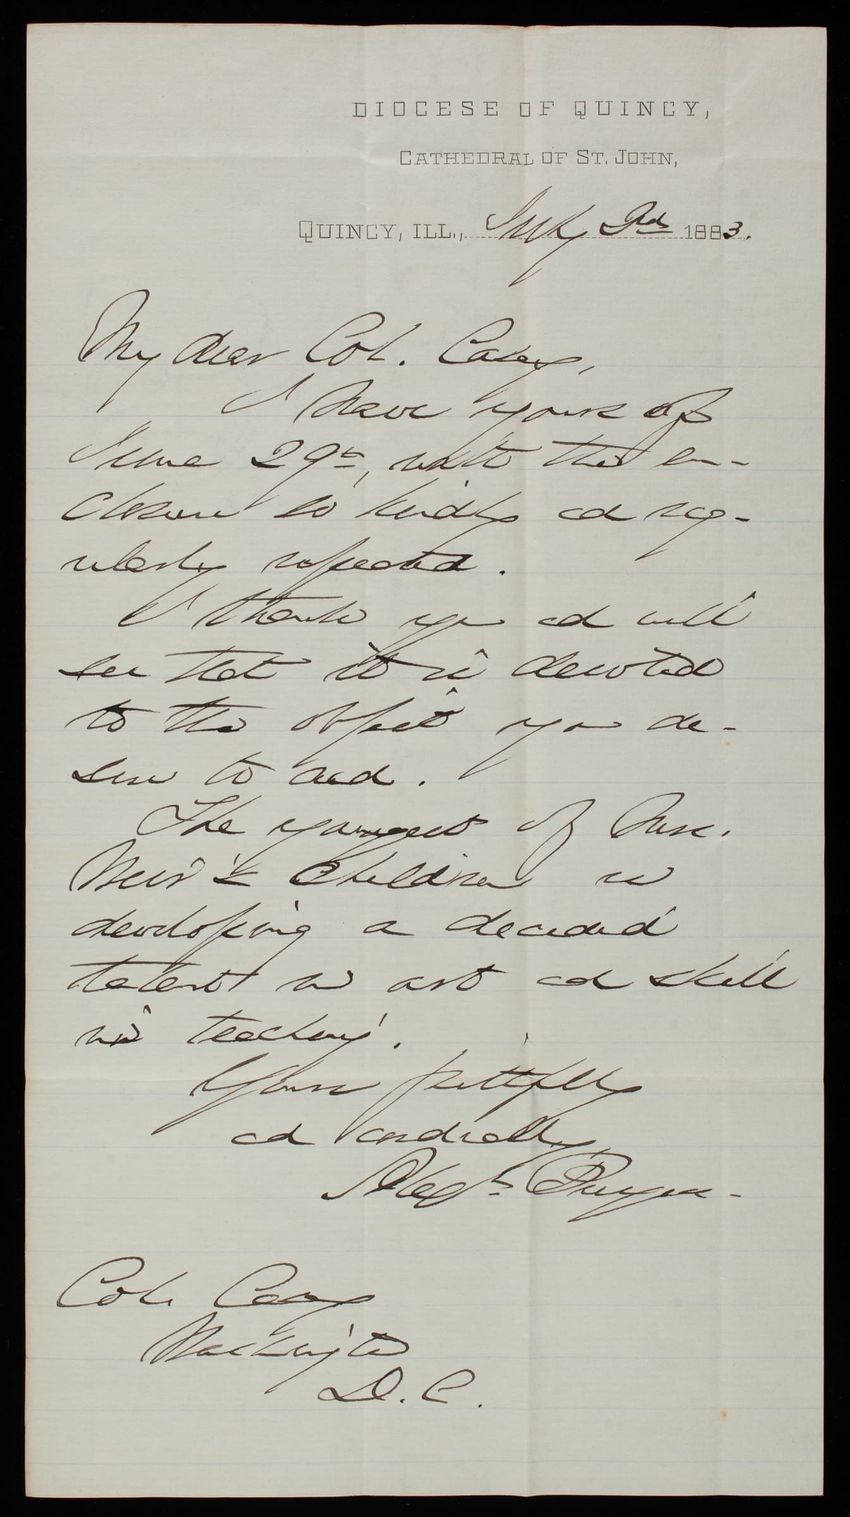 DIOCESE OF QUINCY,
CATHEDRAL OF ST. JOHN,
QUINCY, ILL., July 2nd 1883.
My dear Col. Casey,
I have yours of
June 29th, with the en-
closure so kindly and reg-
ularly repeated.
I thank you and will
see that it is devoted
to the object you de-
sire to aid.
The youngest of Mrs.
children is
developing a decided
talent in art and skill
in teaching.
Yours faithfully
and cordially,
Alexr. Burgess.
Col. Casey
Washington
D. C.